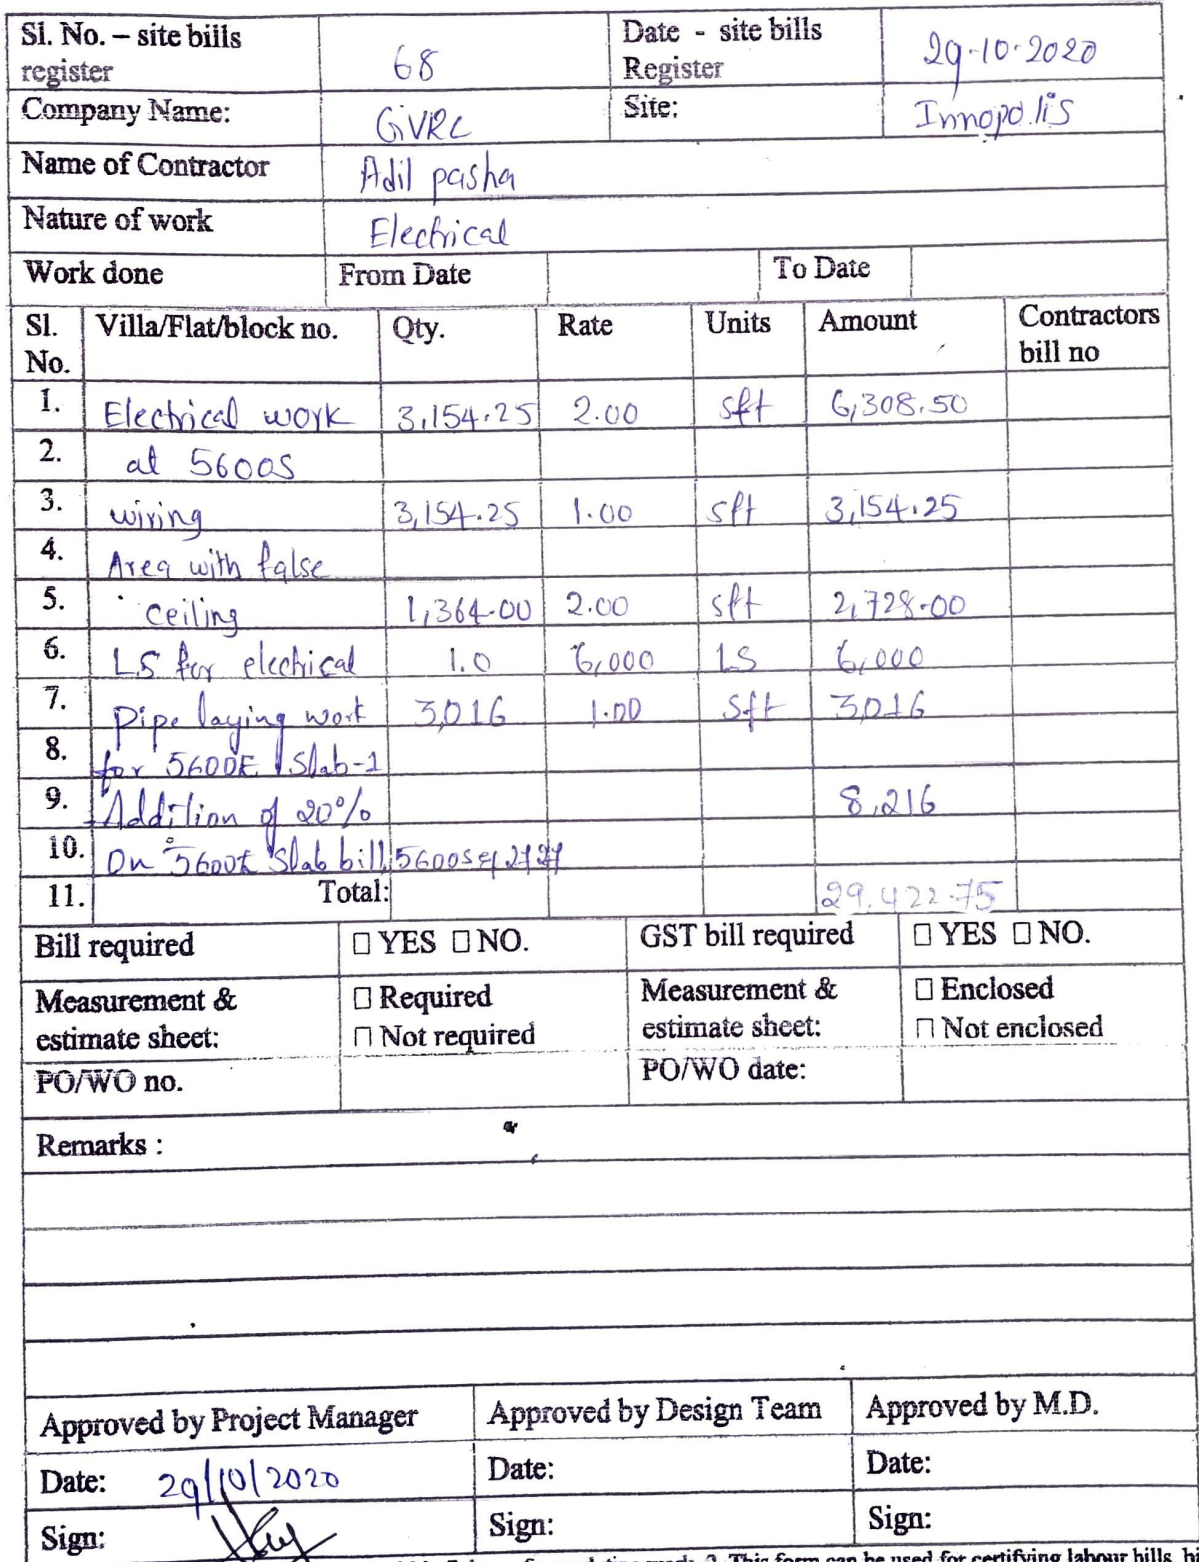 Sl. No. – site bills register 68 Date - site bills Register 29-10-2020
Company Name: GVRC Site: Innopolis
Name of Contractor Adil pasha
Nature of work Electrical
Work done From Date To Date
Sl. No. Villa/Flat/block no. Qty. Rate Units Amount Contractors bill no
1. Electrical work 3,154.25 2.00 sft 6,308.50
2. at 5600S
3. wiring 3,154.25 1.00 sft 3,154.25
4. Area with false
5. ceiling 1,364.00 2.00 sft 2,728.00
6. LS for electrical 1.0 6,000 LS 6,000
7. Pipe laying work 3,016 1.00 Sft 3,016
8. for 5600E Slab-1
9. Addition of 20% 8,216
10. On 5600E Slab bill, 5600S
11. Total: 29,422.75
Bill required □ YES □ NO. GST bill required □ YES □ NO.
Measurement & estimate sheet: □ Required □ Not required Measurement & estimate sheet: □ Enclosed □ Not enclosed
PO/WO no. PO/WO date:
Remarks :
Approved by Project Manager Approved by Design Team Approved by M.D.
Date: 29/10/2020 Date: Date:
Sign: Sign: Sign:
This form can be used for certifying labour bills,